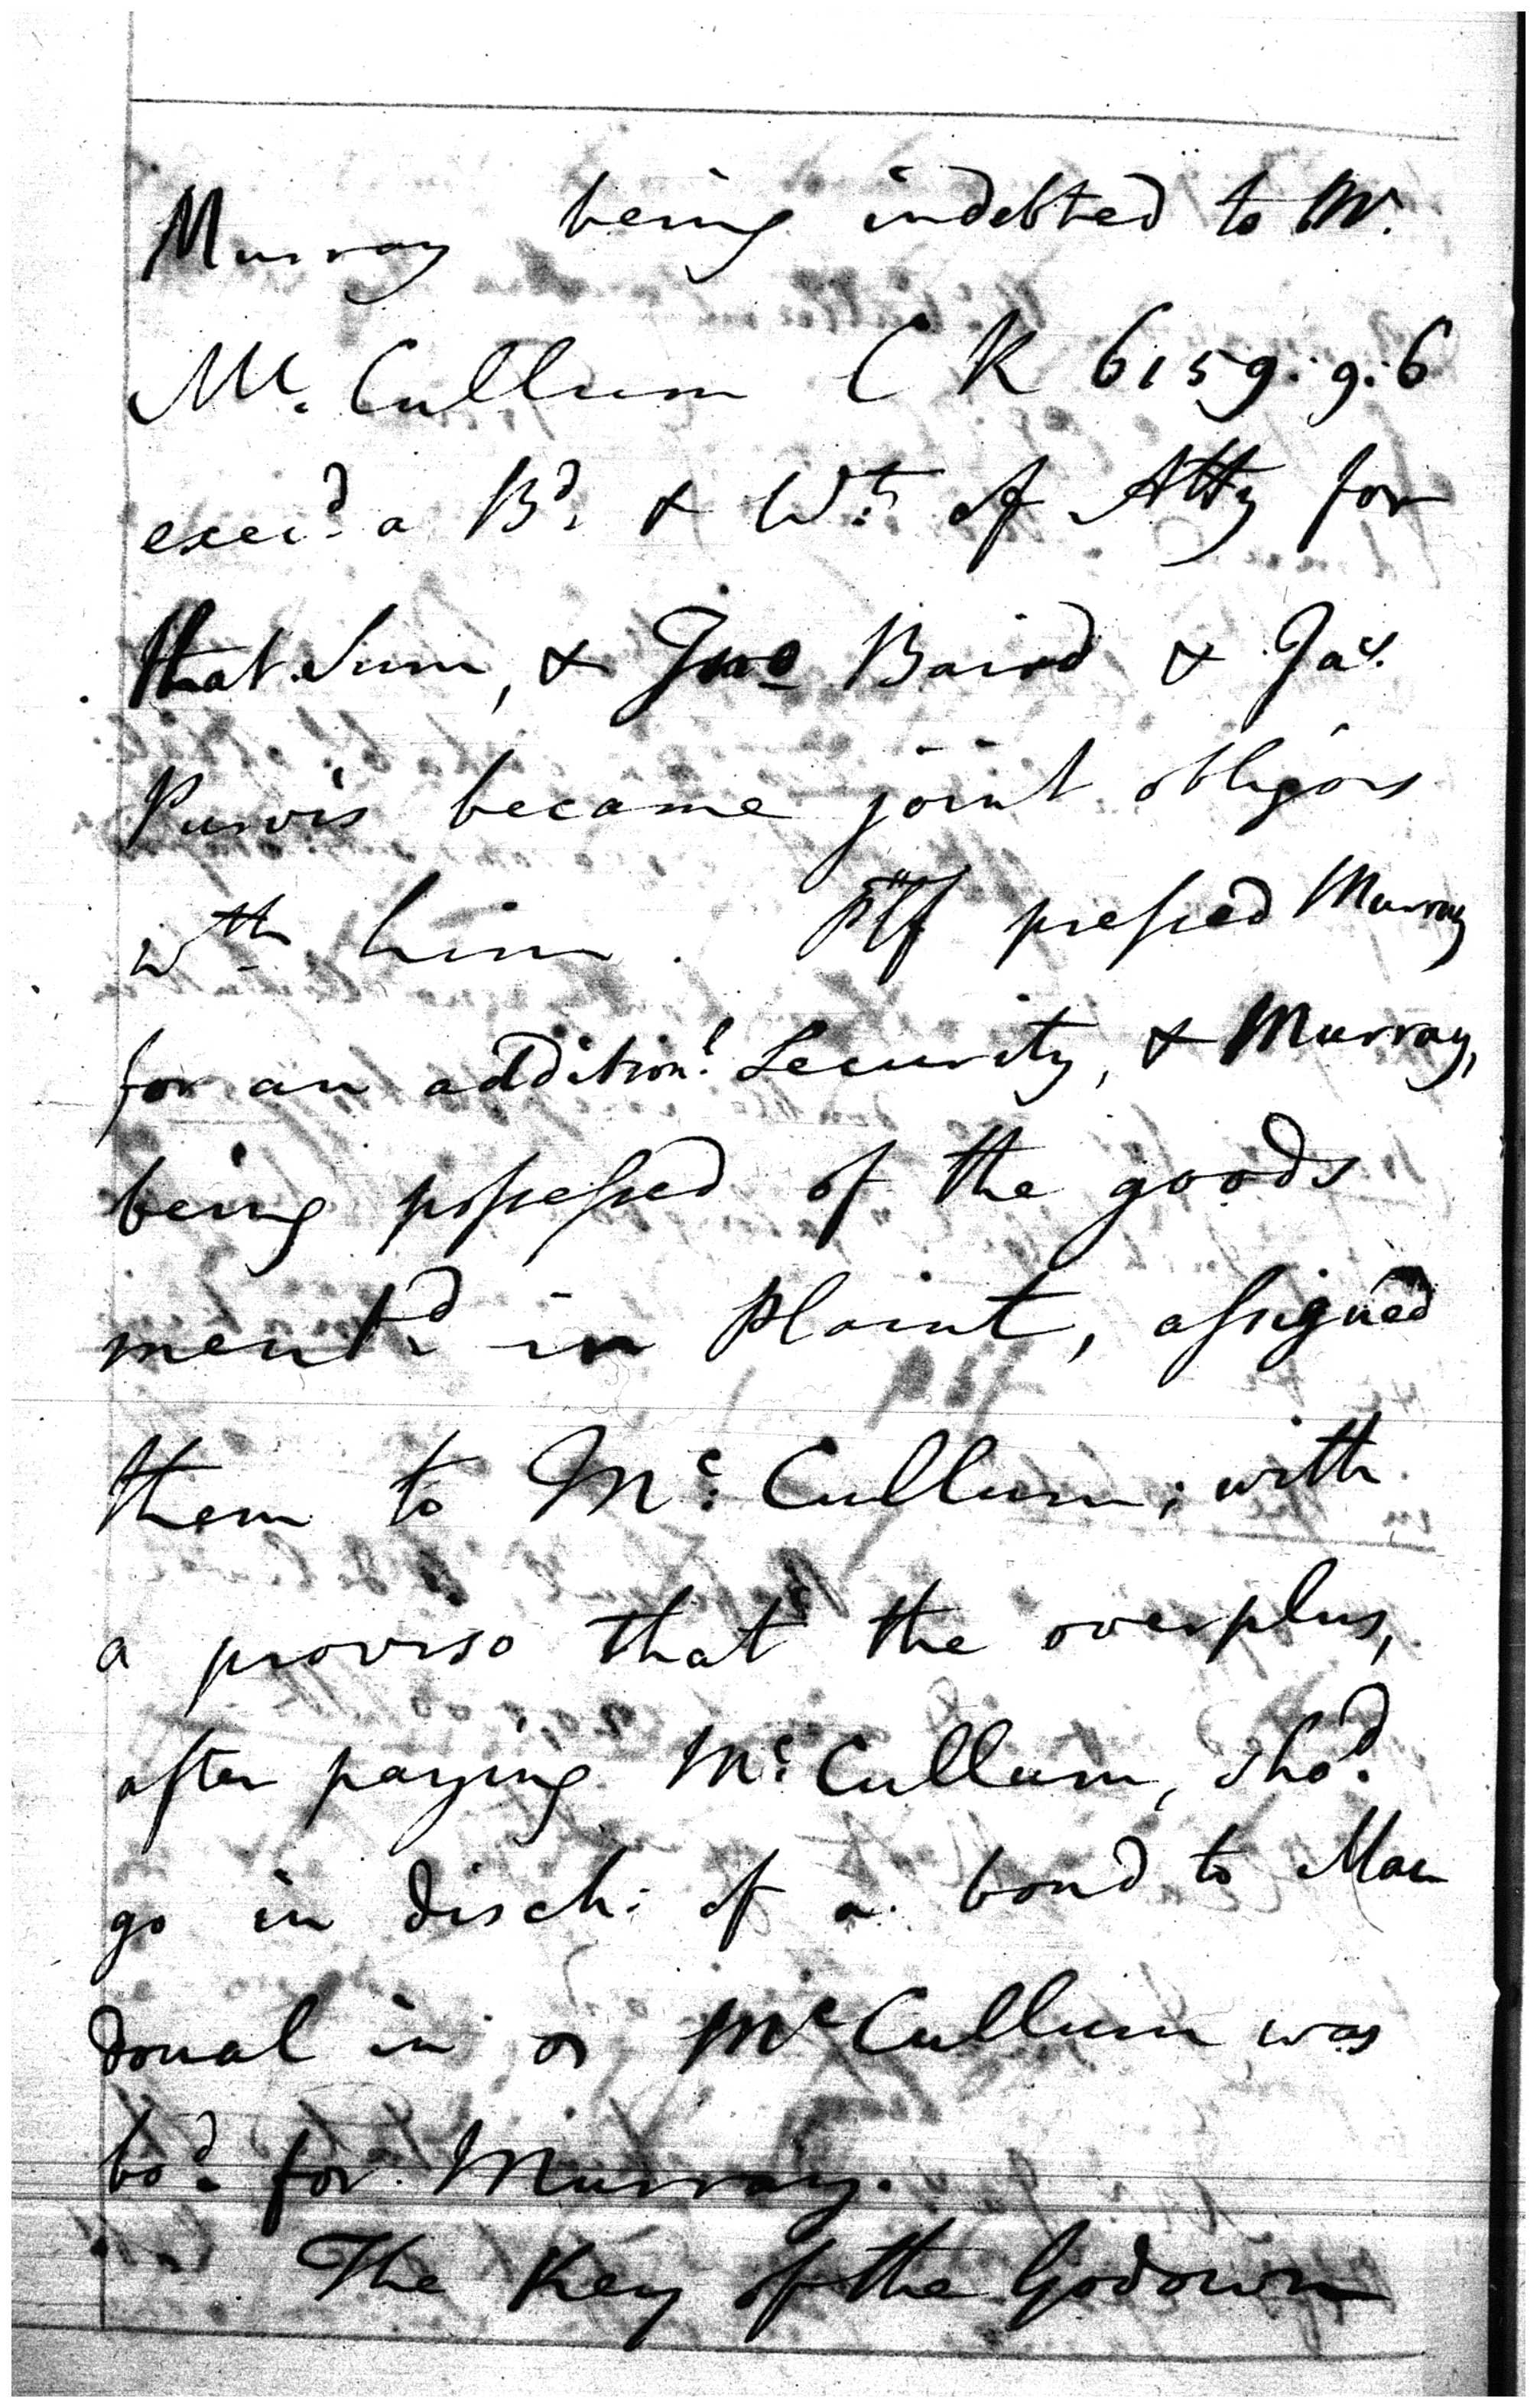 Murray being indebted to Mr.
Mc. Cullum C R 6159:9:6
execd. a Bd. & Wt. of Atty for
that Sum, & Jno Baird & Jas.
Purvis became joint obligors
wth him. Plff pressed Murray
for an addition.l Security, & Murray,
being possessed of the goods
mentd. in Plaint, assigned
them to Mc. Cullum; with
a proviso that the overplus,
after paying Mc. Cullum, shod.
go in disch: of a bond to Mac
donal in Mc Cullum was
bod. for Murray.
The Key of the Godown